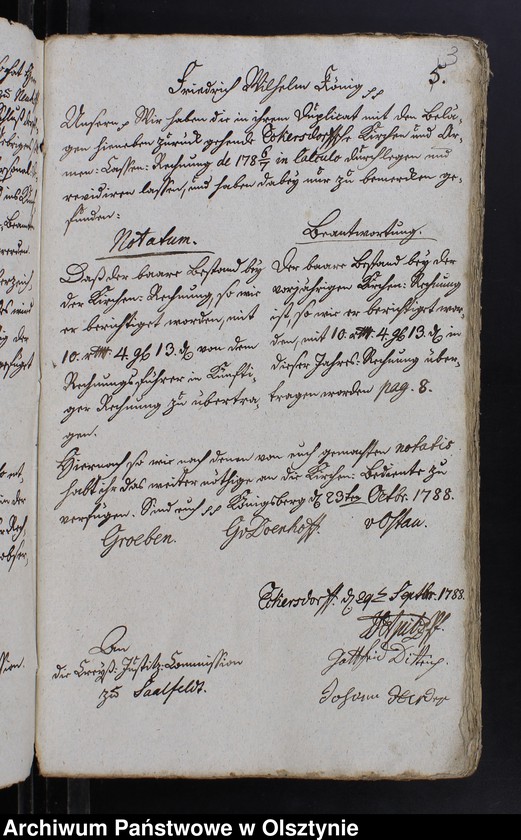 3
5.
Friedrich Wilhelm König pp
Unsern p Wir haben die in ihrem Duplicat mit den Belä-
gen hieneben zurück gehende Eckersdorffsche Kirchen und Ar-
men-Cassen-Rechnung de 178 6/7 in Calculo durchlegen und
revidiren lassen, und haben dabey nur zu bemerken ge-
funden:
Notatum.
Daß der baare Bestand bey
der Kirchen-Rechnung, so wie
er berichtiget worden, mit
10. rthl. 4. gl 13. d von dem
Rechnungsführer in Künfti-
ger Rechnung zu übertra-
gen.
Beantwortung.
Der baare Bestand bey der
vorjährigen Kirchen-Rechnung
ist, so wie er berichtiget wor-
den, mit 10. rthl. 4. gl 13. d in
dieser Jahres-Rechnung über-
tragen worden pag. 8.
Hiernach so wie nach denen von euch gemachten notatis
habt ihr das weiter nöthige an die Kirchen-Bediente zu
verfügen. Sind euch pp Königsberg d 23ten Octbr. 1788.
Groeben. GvDoenhoff. vOstau.
Eckersdorff. d 29t Septbr. 1788.
Gottfried Dittrich.
Johann
An
die Creyß-Justitz-Commission
zu Saalfeldt.
Archiwum Państwowe w Olsztynie